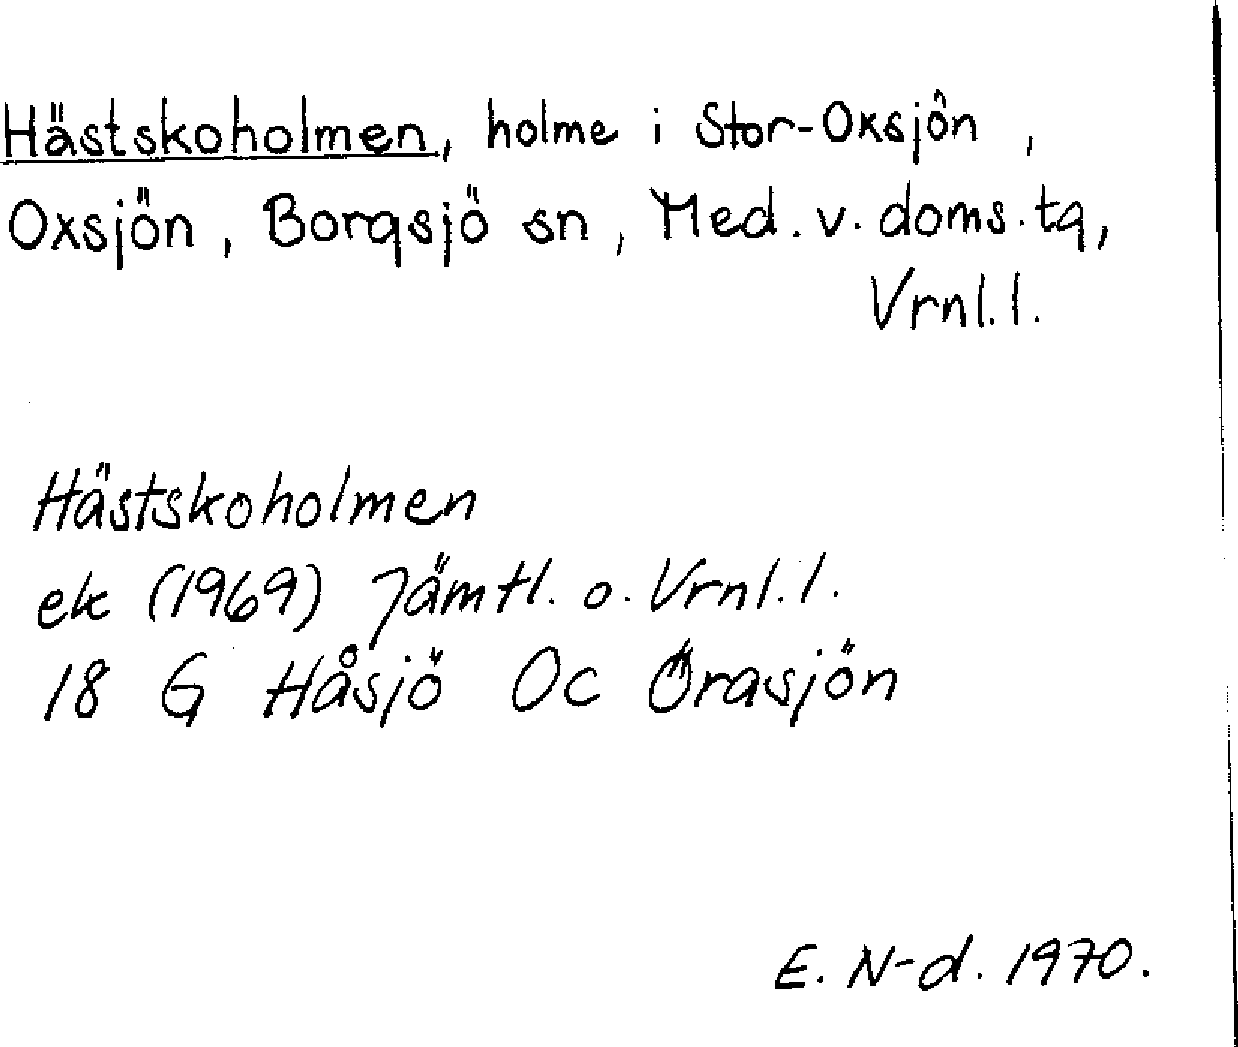 Hästskoholmen, holme i Stor-Oxsjön,
Oxsjön, Borgsjö sn, Med. v. doms. tg,
Vrnl. l.
Hästskoholmen
ek (1969) Jämtl. o. Vrnl. l.
18 G Håsjö Oc Örasjön
E. N-d. 1970.